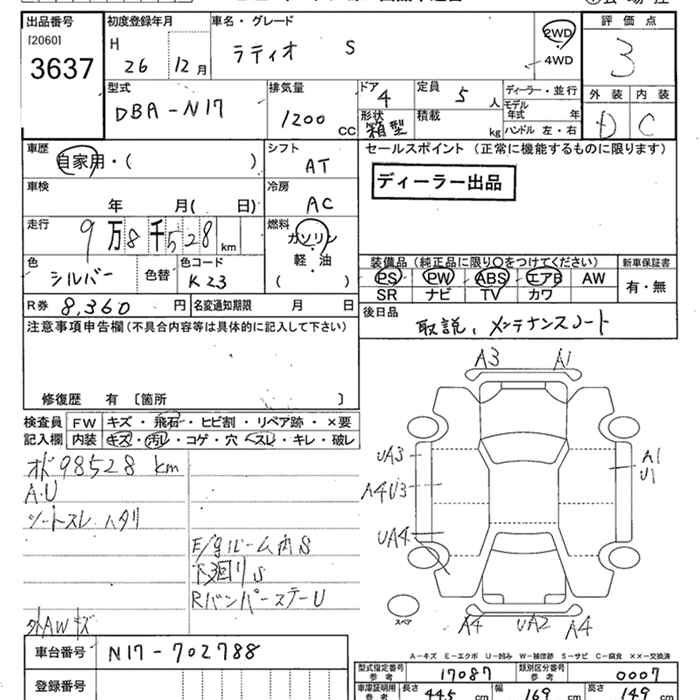 出品番号
[2060]
3637
初度登録年月
H
26 12月
車名・グレード
ラティオ S
2WD
4WD
評価点
3
型式
DBA-N17
排気量
1200 CC
ドア
4
定員
5 人
形状
箱型
積載
kg
ディーラー・並行
モデル
年式 年
ハンドル 左・右
外装 内装
D C
車歴
自家用・( )
シフト
AT
セールスポイント (正常に機能するものに限ります)
ディーラー出品
車検
年 月( 日)
冷房
AC
走行
9万8千528 km
燃料
ガソリン
軽・油
( )
色
シルバー
色替
色コード
K23
装備品 (純正品に限り〇をつけてください)
PS PW ABS エアB AW
SR ナビ TV カワ
新車保証書
有・無
R券 8,360 円
名変通知期限 月 日
後日品
取説、メンテナンスノート
注意事項申告欄(不具合内容等は具体的に記入して下さい)
修復歴 有 〔箇所 〕
検査員
記入欄
FW キズ・飛石・ヒビ割・リペア跡・×要
内装 キズ・汚レ・コゲ・穴・スレ・キレ・破レ
オド98528 km
A.U
シートスレ ハタリ
E/gルーム内S
下廻りS
RバンパーステーU
外AWキズ
A3 A1
UA3
A1
U1
A4U3
UA4
A4 UA2 A4
スペア
車台番号 N17-702788
登録番号
A-キズ E-エクボ U-凹み W-補修跡 S-サビ C-腐食 ××-交換済
型式指定番号
参考
17087
類別区分番号
参考
0007
車庫証明用
参考
長さ 445 cm
幅 169 cm
高さ 149 cm